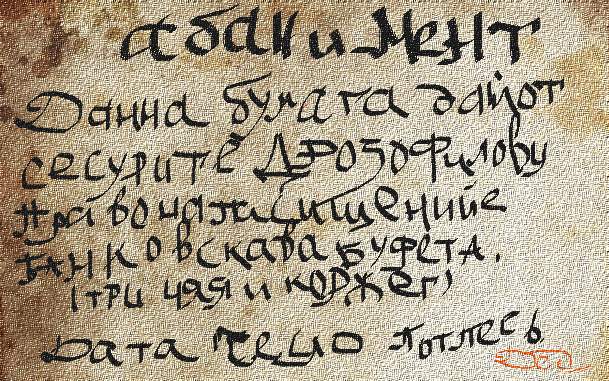 абанимент
Данна бумага дайот
сесурите Дрозофилову
право на пасищение
банковскава буфета.
(три чая и коржег)
Дата Чесло потпесь